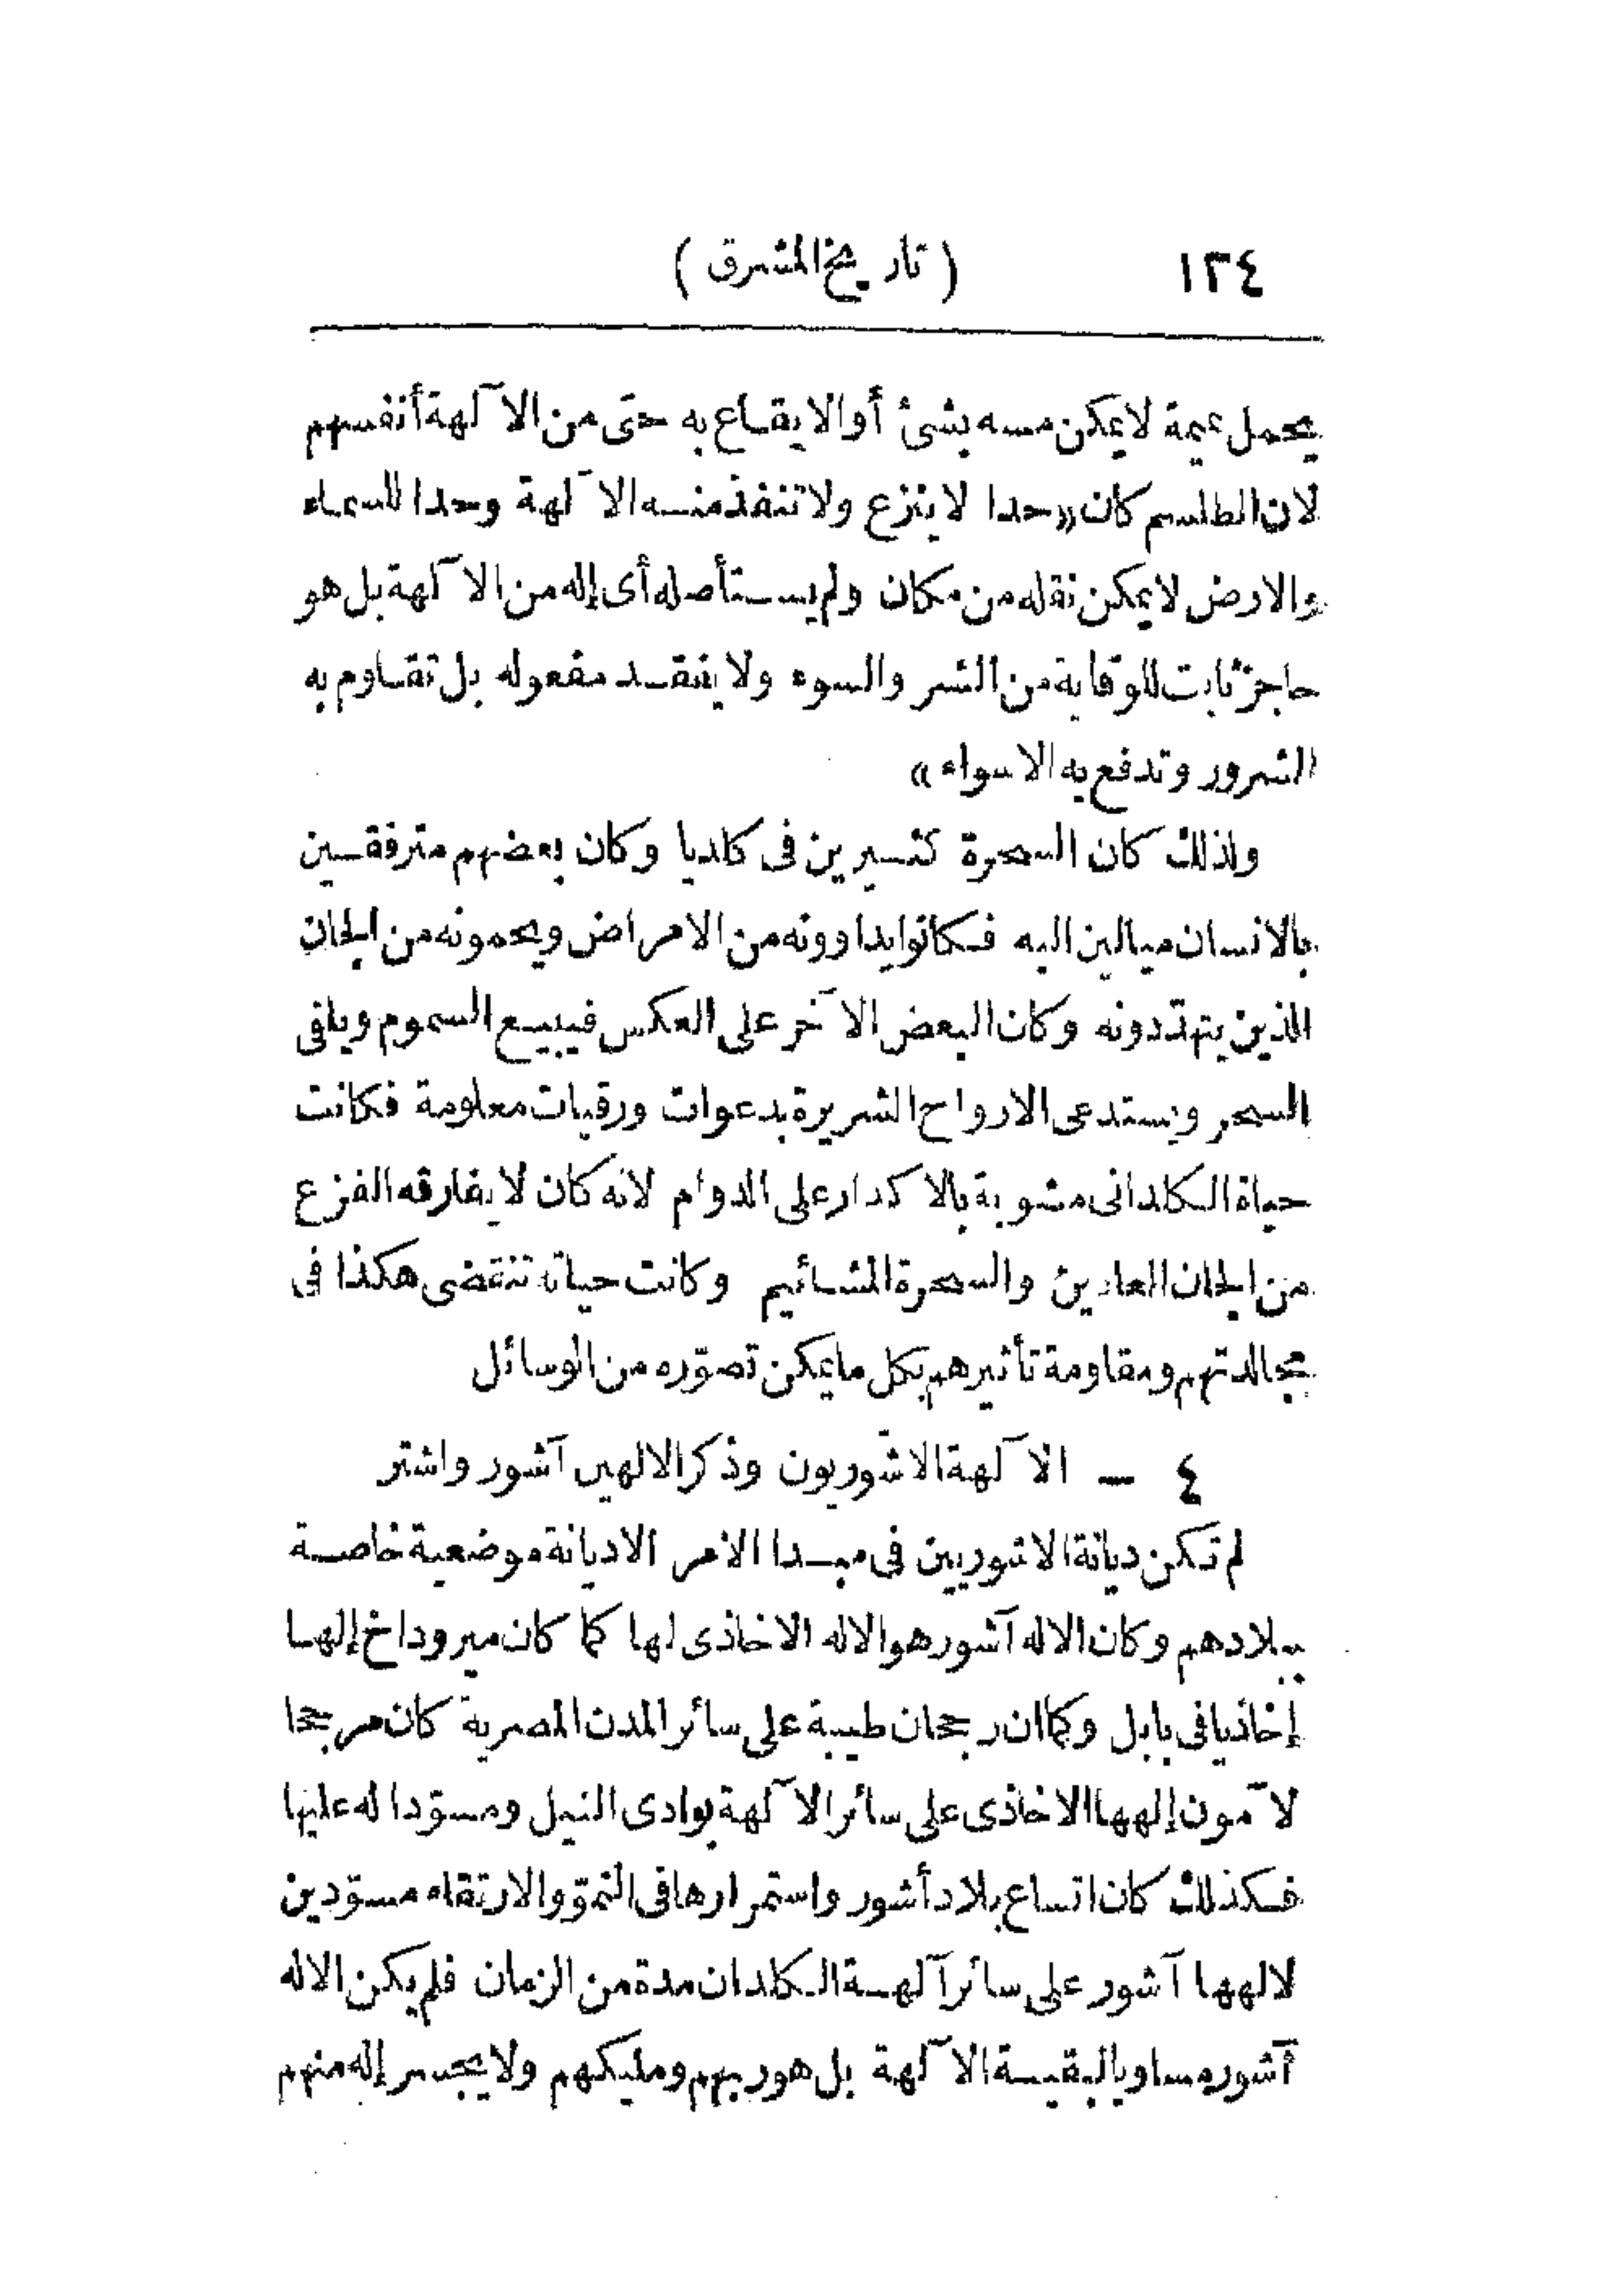 ١٣٤ (تاريخ المشرق)
يحمل تميمة لا يمكن مسه بشئ أو الايقاع به حتى من الآلهة أنفسهم
لان الطلسم كان «حدا لا ينزع ولا تنفذ منه الآلهة وحدا للسماء
والارض لا يمكن نقله من مكان ولم يستأصله أى إله من الآلهة بل هو
حاجز ثابت للوقاية من الشر والسوء ولا يفقد مفعوله بل تقاوم به
الشرور وتدفع به الاسواء»
ولذلك كان السحرة كثيرين فى كلديا وكان بعضهم مترفقين
بالانسان ميالين اليه فكانوا يداوونه من الامراض ويحمونه من الجان
الذين يتهددونه وكان البعض الآخر على العكس فيبيع السموم ويلقى
السحر ويستدعى الارواح الشريرة بدعوات ورقيات معلومة فكانت
حياة الكلدانى مشوبة بالاكدار على الدوام لانه كان لا يفارقه الفزع
من الجان العادين والسحرة المشائيم وكانت حياته تنقضى هكذا فى
مجالدتهم ومقاومة تأثيرهم بكل ما يمكن تصوّره من الوسائل
٤ — الآلهة الاشوريون وذكر الالهين آشور واشتر
لم تكن ديانة الاشوريين فى مبدا الامر الا ديانة موضعية خاصة
ببلادهم وكان الاله آشور هو الاله الاخاذى لها كما كان ميروداخ إلها
إخاذيا فى بابل وكما ان رجحان طيبة على سائر المدن المصرية كان مرجحا
لآمون إلهها الاخاذى على سائر الآلهة بوادى النيل ومسوّدا له عليها
فكذلك كان اتساع بلاد أشور واستمرارها فى النموّ والارتقاء مسوّدين
لالهها آشور على سائر آلهة الكلدان مدة من الزمان فلم يكن الاله
آشور مساويا لبقية الآلهة بل هو ربهم ومليكهم ولا يجسر إله منهم